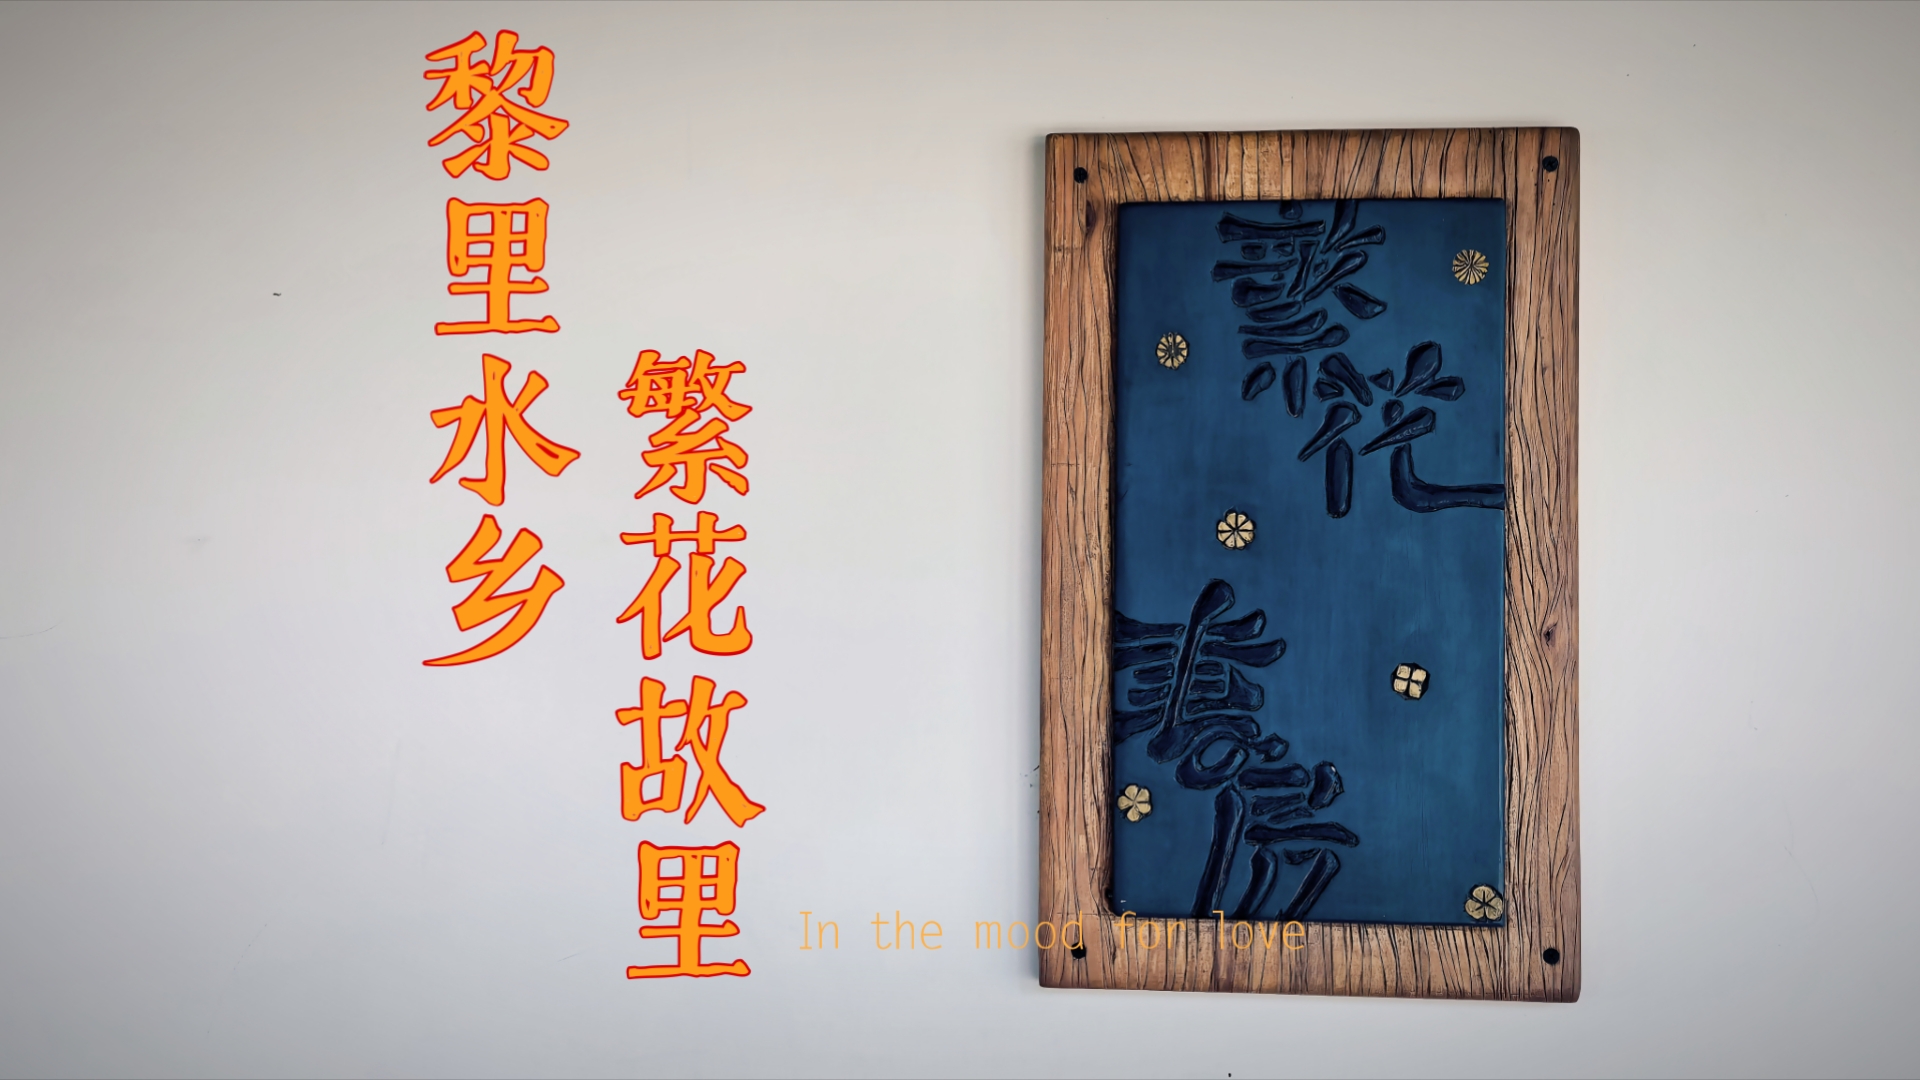 黎里水乡
繁花故里
繁花
书房
In the mood for love